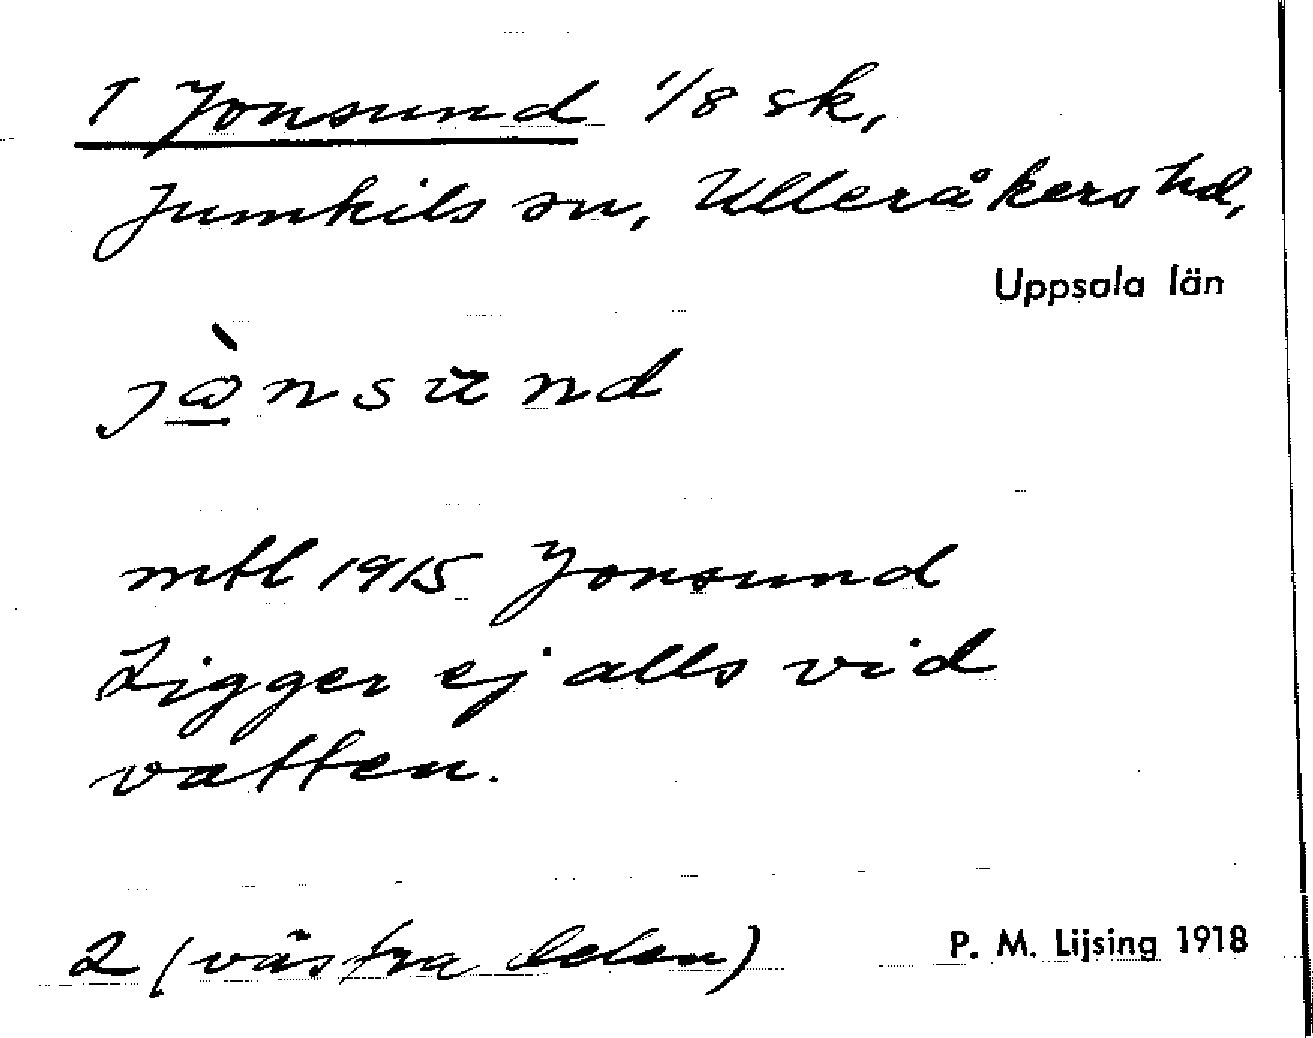 1 Jonsund 1/8 sk,
Jumkils sn, Ulleråkers hd,
Uppsala län
mtl 1915 Jonsund
Ligger ej alls vid
vatten.
2 (västra delen)
P. M. Lijsing 1918